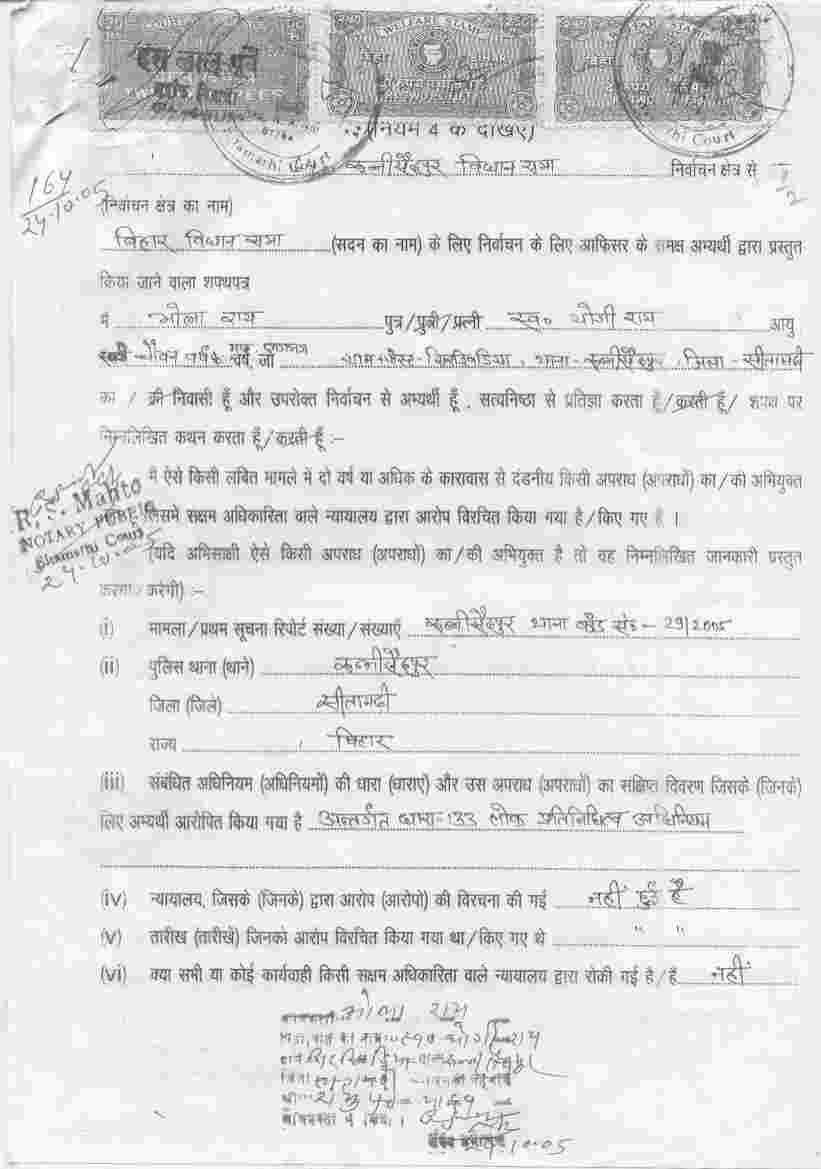 WELFARE STAMP
(नियम 4 क देखिए)
रून्नीसैदपुर विधान सभा निर्वाचन क्षेत्र से
164
24.10.05
(निर्वाचन क्षेत्र का नाम)
बिहार विधान सभा (सदन का नाम) के लिए निर्वाचन के लिए आफिसर के समक्ष अभ्यर्थी द्वारा प्रस्तुत
किया जाने वाला शपथपत्र
मैं भोला राय पुत्र/पुत्री/पत्नी स्व० योगी राय आयु
वर्ष, जो थाना-रून्नीसैदपुर, जिला-सीतामढी
का / की निवासी हूँ और उपरोक्त निर्वाचन से अभ्यर्थी हूँ, सत्यनिष्ठा से प्रतिज्ञा करता हूँ/करती हूँ/ शपथ पर
निम्नलिखित कथन करता हूँ/करती हूँ :-
मैं ऐसे किसी लंबित मामले में दो वर्ष या अधिक के कारावास से दंडनीय किसी अपराध (अपराधों) का/की अभियुक्त
Mahto
NOTARY PUBLIC
Court
24.10.05
जिसमे सक्षम अधिकारिता वाले न्यायालय द्वारा आरोप विरचित किया गया है/किए गए है ।
(यदि अभिसाक्षी ऐसे किसी अपराध (अपराधों) का/की अभियुक्त है तो वह निम्नलिखित जानकारी प्रस्तुत
करेगा/करेगी) :-
(i) मामला/प्रथम सूचना रिपोर्ट संख्या/संख्याएँ रून्नीसैदपुर थाना काँड सं० - 29/2005
(ii) पुलिस थाना (थाने) रून्नीसैदपुर
जिला (जिले) सीतामढी
राज्य बिहार
(iii) संबंधित अधिनियम (अधिनियमों) की धारा (धाराएँ) और उस अपराध (अपराधों) का संक्षिप्त विवरण जिसके (जिनके)
लिए अभ्यर्थी आरोपित किया गया है अन्तर्गत धारा-133 लोक प्रतिनिधित्व अधिनियम
(iv) न्यायालय, जिसके (जिनके) द्वारा आरोप (आरोपो) की विरचना की गई नहीं हुई है
(v) तारीख (तारीखें) जिनको आरोप विरचित किया गया था/किए गए थे " "
(vi) क्या सभी या कोई कार्यवाही किसी सक्षम अधिकारिता वाले न्यायालय द्वारा रोकी गई है/हैं नहीं
भोला राय